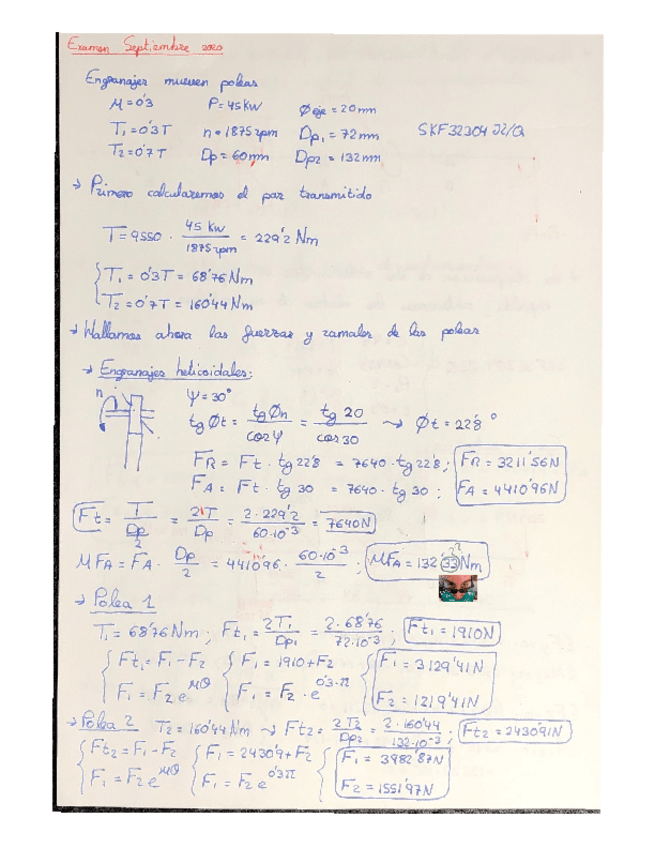 Examen Septiembre 2020
Engranajes mueven poleas
μ = 0'3 P = 45 kW Ø eje = 20 mm
T₁ = 0'3 T n = 1875 rpm Dp₁ = 72 mm SKF 32304 J2/Q
T₂ = 0'7 T Dp = 60 mm Dp₂ = 132 mm
→ Primero calcularemos el par transmitido
T = 9550 · 45 kW / 1875 rpm = 229'2 Nm
{ T₁ = 0'3 T = 68'76 Nm
T₂ = 0'7 T = 160'44 Nm
→ Hallamos ahora las fuerzas y ramales de las poleas
→ Engranajes helicoidales:
n ψ = 30°
tg Øt = tg Øn / cos ψ = tg 20 / cos 30 ⇝ Øt = 22'8°
FR = Ft · tg 22'8 = 7640 · tg 22'8 ; FR = 3211'56 N
FA = Ft · tg 30 = 7640 · tg 30 ; FA = 4410'96 N
Ft = T / (Dp/2) = 2T / Dp = 2 · 229'2 / 60·10⁻³ = 7640 N
MFA = FA · Dp / 2 = 4410'96 · 60·10⁻³ / 2 ; MFA = 132'33 Nm
→ Polea 1
T₁ = 68'76 Nm ; Ft₁ = 2T₁ / Dp₁ = 2 · 68'76 / 72·10⁻³ ; Ft₁ = 1910 N
{ Ft₁ = F₁ - F₂ { F₁ = 1910 + F₂ { F₁ = 3129'41 N
F₁ = F₂ e^μθ F₁ = F₂ · e^0'3·π F₂ = 1219'41 N
→ Polea 2 T₂ = 160'44 Nm → Ft₂ = 2T₂ / Dp₂ = 2 · 160'44 / 132·10⁻³ ; Ft₂ = 2430'91 N
{ Ft₂ = F₁ - F₂ { F₁ = 2430'9 + F₂ { F₁ = 3982'87 N
F₁ = F₂ e^μθ F₁ = F₂ e^0'3π F₂ = 1551'97 N